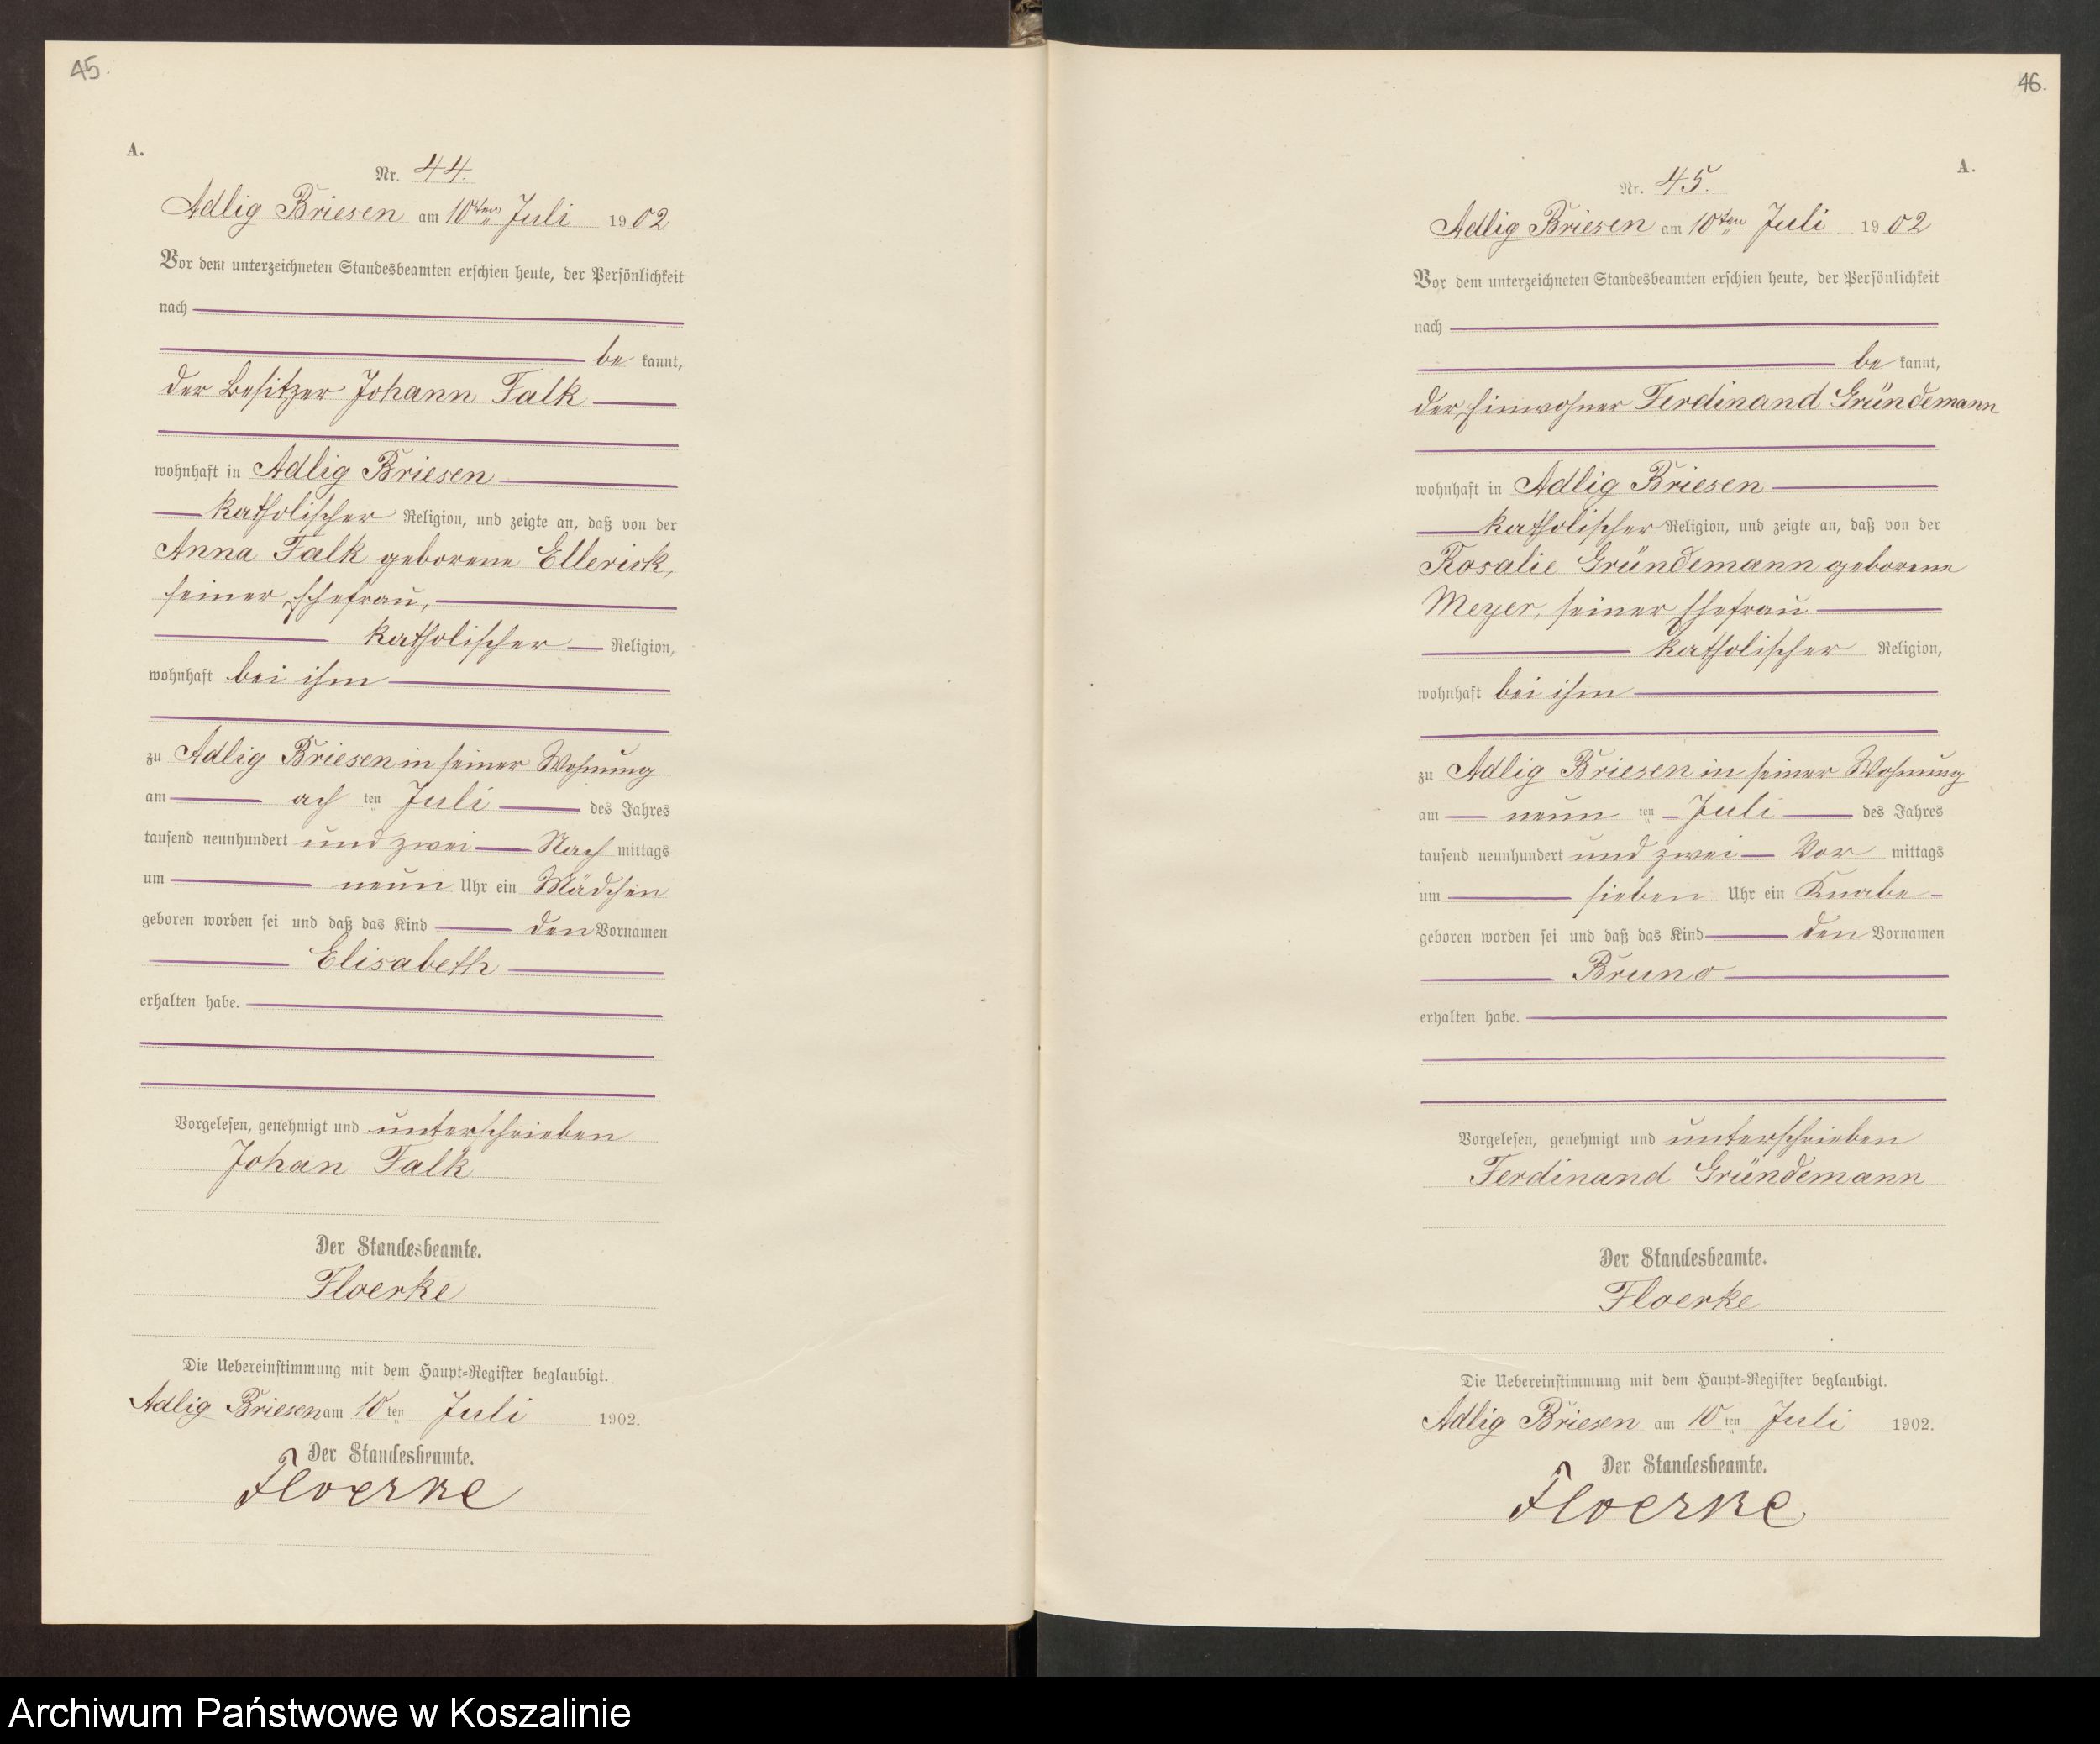 45.
A.
Nr. 44.
Adlig Briesen am 10ten Juli 1902
Vor dem unterzeichneten Standesbeamten erschien heute, der Persönlichkeit
nach
be kannt,
der Besitzer Johann Falk
wohnhaft in Adlig Briesen
katholischer Religion, und zeigte an, daß von der
Anna Falk geborene Ellerick,
seiner Ehefrau,
katholischer Religion,
wohnhaft bei ihm
zu Adlig Briesen in seiner Wohnung
am ach ten Juli des Jahres
tausend neunhundert und zwei Nach mittags
um neun Uhr ein Mädchen
geboren worden sei und daß das Kind den Vornamen
Elisabeth
erhalten habe.
Vorgelesen, genehmigt und unterschrieben
Johan Falk
Der Standesbeamte.
Floerke
Die Uebereinstimmung mit dem Haupt-Register beglaubigt.
Adlig Briesen am 10ten Juli 1902.
Der Standesbeamte.
Floerke
46.
A.
Nr. 45.
Adlig Briesen am 10ten Juli 1902
Vor dem unterzeichneten Standesbeamten erschien heute, der Persönlichkeit
nach
be kannt,
der Einwohner Ferdinand Gründemann
wohnhaft in Adlig Briesen
katholischer Religion, und zeigte an, daß von der
Rosalie Gründemann geborene
Meyer, seiner Ehefrau
katholischer Religion,
wohnhaft bei ihm
zu Adlig Briesen in seiner Wohnung
am neun ten Juli des Jahres
tausend neunhundert und zwei Vor mittags
um sieben Uhr ein Knabe
geboren worden sei und daß das Kind den Vornamen
Bruno
erhalten habe.
Vorgelesen, genehmigt und unterschrieben
Ferdinand Gründemann
Der Standesbeamte.
Floerke
Die Uebereinstimmung mit dem Haupt-Register beglaubigt.
Adlig Briesen am 10ten Juli 1902.
Der Standesbeamte.
Floerke
Archiwum Państwowe w Koszalinie